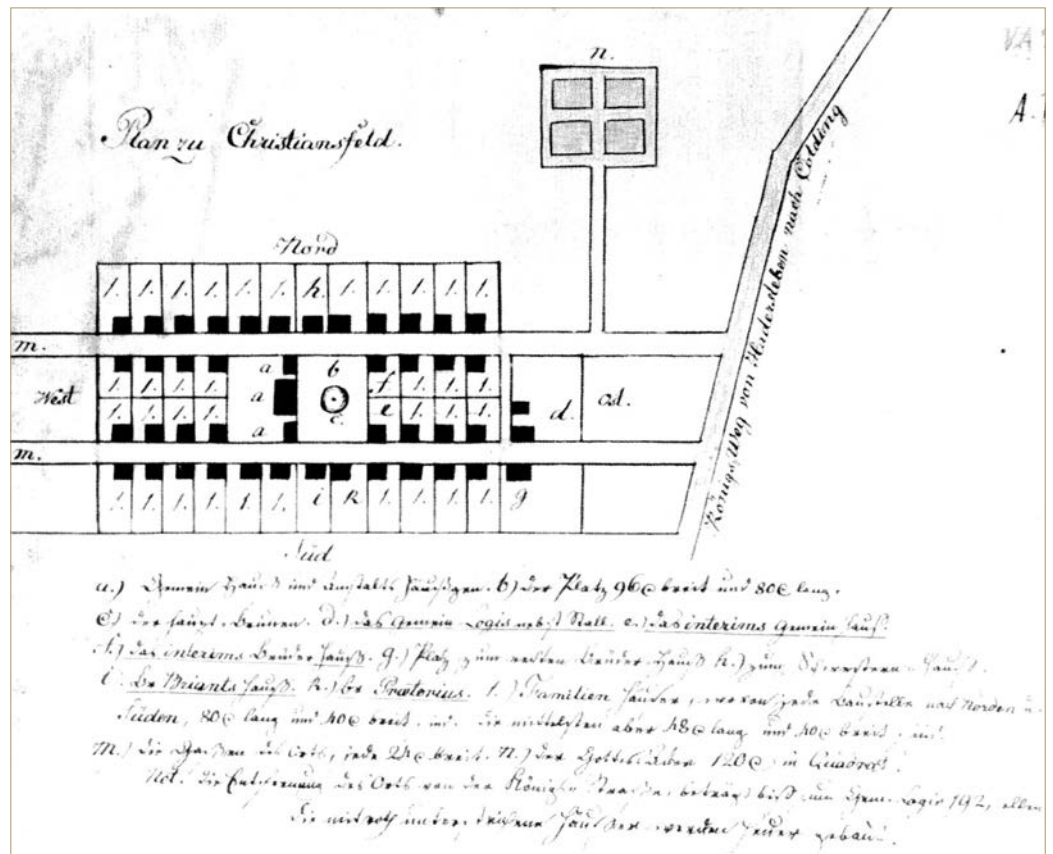 VA
A.
n.
Plan zu Christiansfeld.
Königs Weg von Hadersleben nach Colding
Nord
1. 1. 1. 1. 1. 1. h. 1. 1. 1. 1. 1.
m.
a b f 1. 1. 1.
West 1. 1. 1. 1. a
1. 1. 1. 1. a c. e 1. 1. 1. d. Ost.
m.
1. 1. 1. 1. 1. 1. i k 1. 1. 1. 1. g
Süd
a.) Gemein Hauß und Anstalts Häußgen. b) der Platz 96 e breit und 80 e lang.
c) der Haupt Brunnen. d.) das Gemein Logis nebst Stall. e.) das interims Gemein Hauß.
f.) das interims Brüder Hauß. g.) Platz zum ersten Brüder Hauß h.) zum Schwestern Hauß.
i. Br Briants Hauß. k.) br Prætorius. 1.) Familien Häuser, wovon jede Baustelle nach Norden u.
Süden, 80 e lang und 40 e breit, die mittelsten aber 48 e lang und 40 e breit
m.) die Gaßen des Orts, jede 24 e breit. n.) der Gottes Acker 120 e in Quadrat.
Not. die Entfernung des Orts von der Königs Straße, beträgt biß zum Gem. Logis 192, ellen
die mit roth Häußer werden heuer gebaut.